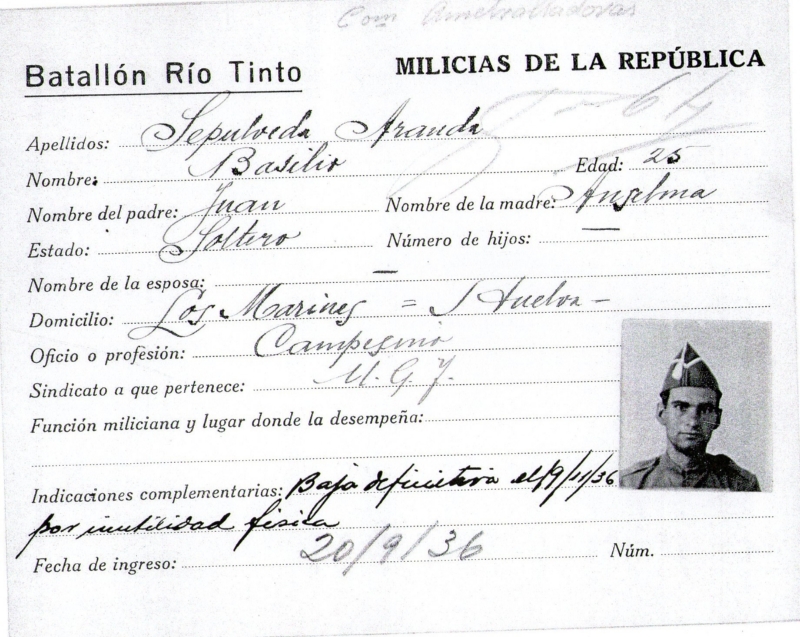 Com Ametralladoras
Batallón Río Tinto
MILICIAS DE LA REPÚBLICA
Apellidos: Sepulveda Aranda
Nombre: Basilio Edad: 25
Nombre del padre: Juan Nombre de la madre: Anselma
Estado: Soltero Número de hijos: —
Nombre de la esposa: —
Domicilio: Los Marines = Huelva -
Oficio o profesión: Campesino
Sindicato a que pertenece: U. G. T.
Función miliciana y lugar donde la desempeña:
Indicaciones complementarias: Baja definitiva el 9/11/36
por inutilidad física
Fecha de ingreso: 20/9/36 Núm.